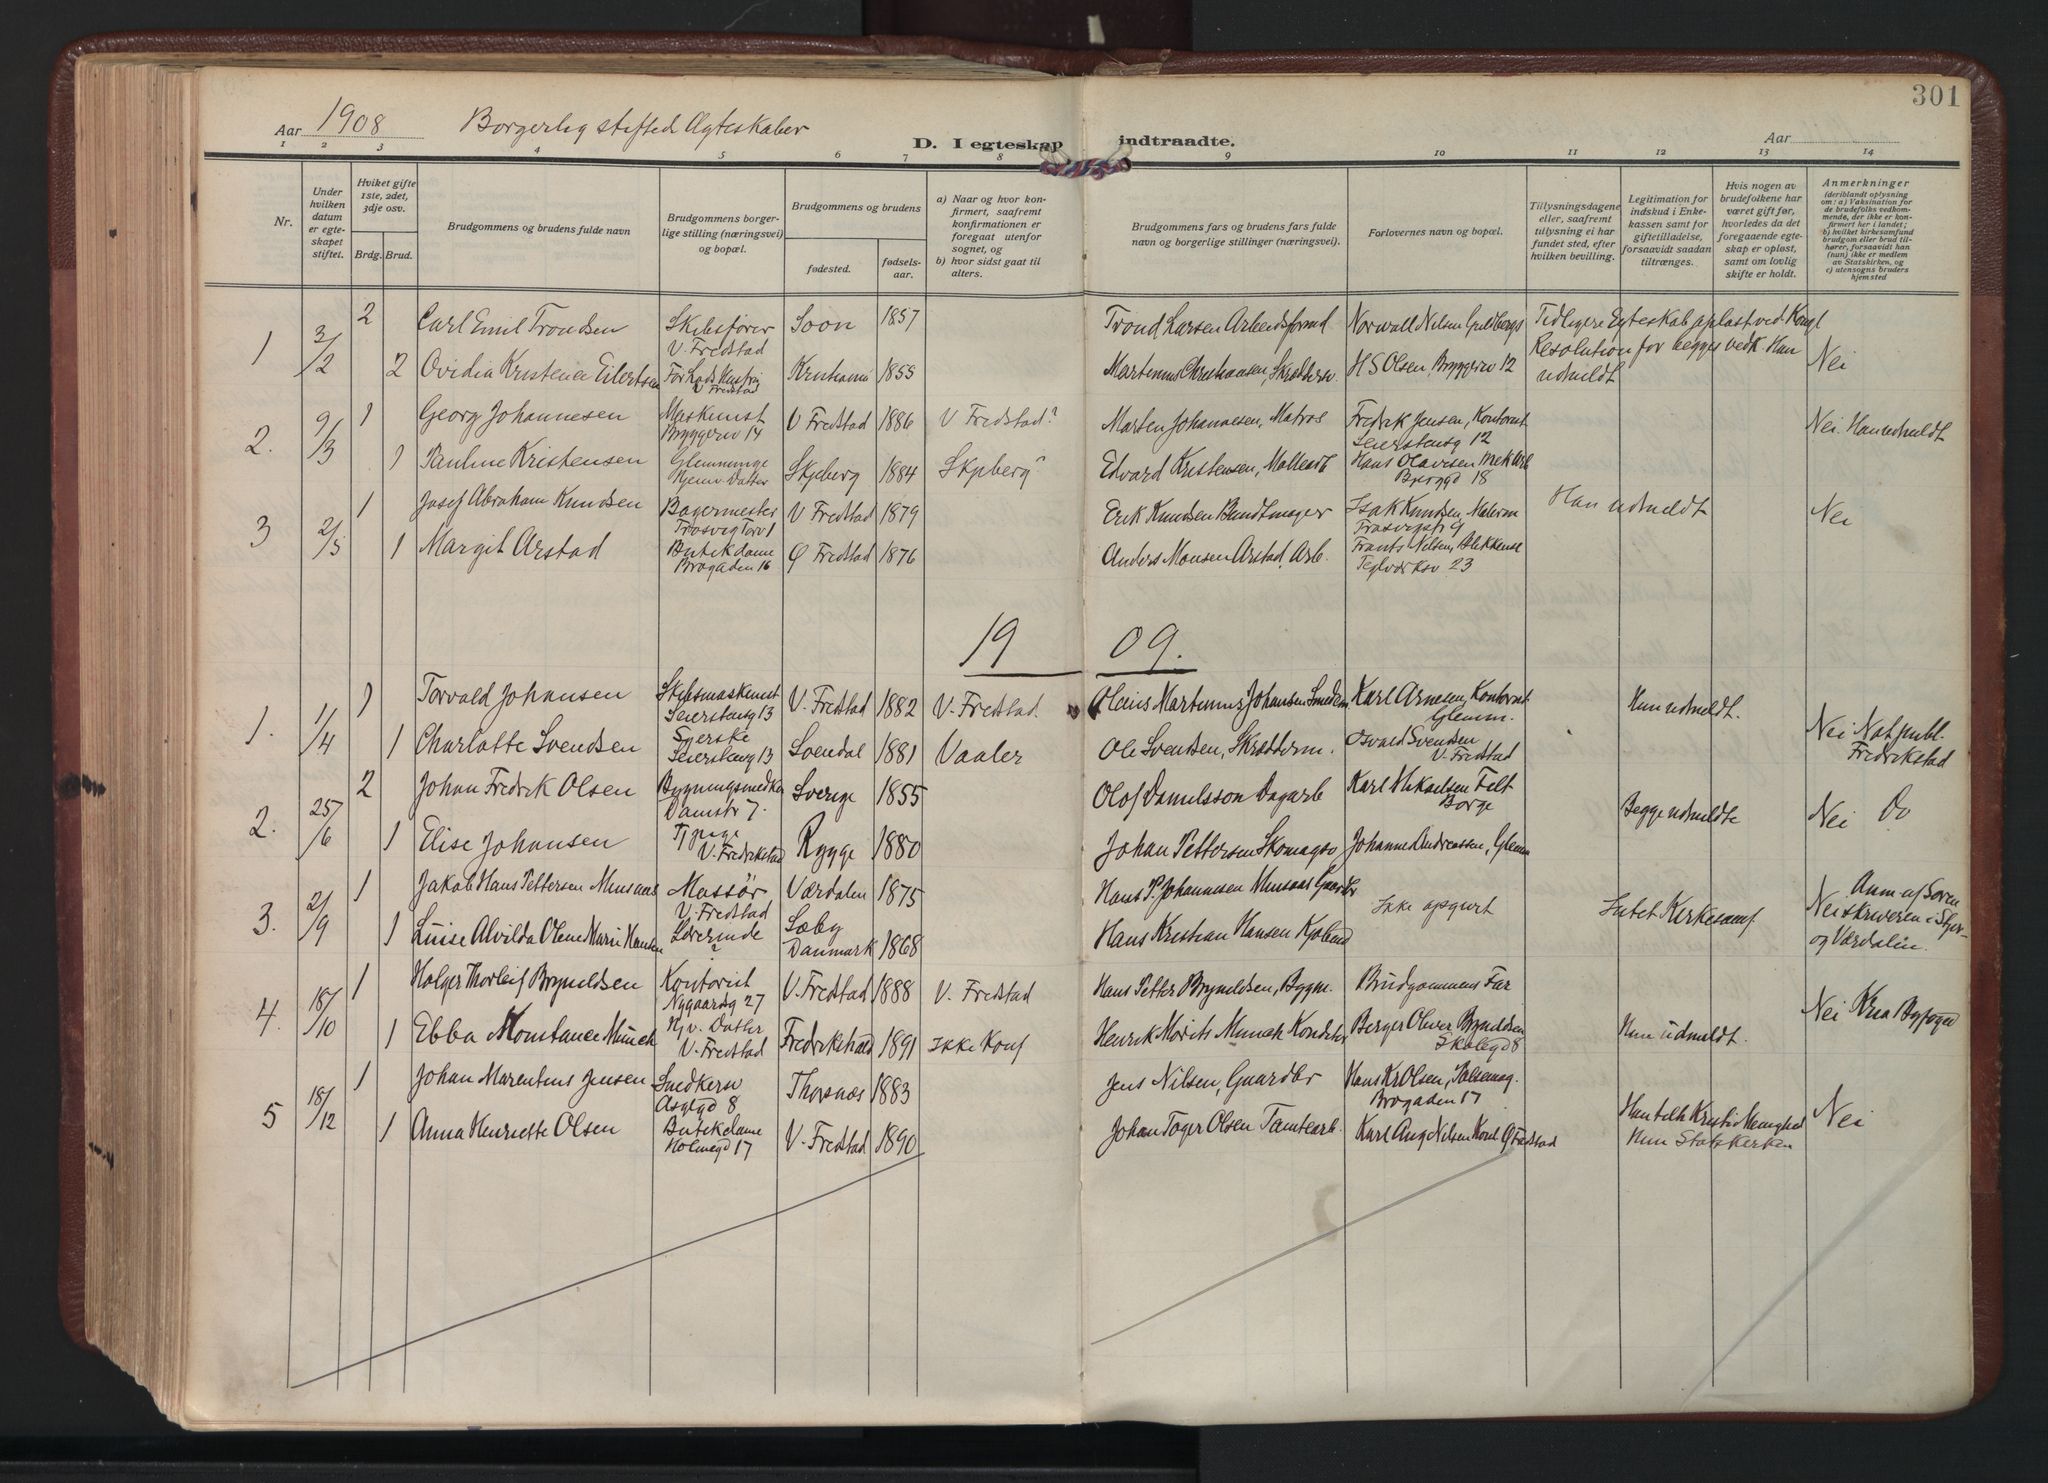 301
Aar 1908 Borgerlig stiftede Ægteskaber
Aar
D. I egteskap indtraadte.
1 2 3 4 5 6 7 8 9 10 11 12 13 14
Nr.
Under hvilken datum er egteskapet stiftet.
Hviket gifte 1ste, 2det, 3dje osv.
Brdg. Brud.
Brudgommens og brudens fulde navn
Brudgommens borgerlige stilling (næringsvei) og bopæl.
Brudgommens og brudens
fødested.
fødselsaar.
a) Naar og hvor konfirmert, saafremt konfirmationen er foregaat utenfor sognet, og
b) hvor sidst gaat til alters.
Brudgommens fars og brudens fars fulde navn og borgerlige stillinger (næringsvei).
Forlovernes navn og bopæl.
Tillysningsdagene eller, saafremt tillysning ei har fundet sted, efter hvilken bevilling.
Legitimation for indskud i Enkekassen samt for giftetilladelse, forsaavidt saadan tiltrænges.
Hvis nogen av brudefolkene har været gift før, hvorledes da det foregaaende egteskap er opløst, samt om lovlig skifte er holdt.
Anmerkninger
(deriblandt oplysning om: a) Vaksination for de brudefolks vedkommende, der ikke er konfirmert her i landet; b) hvilket kirkesamfund brudgom eller brud tilhører, forsaavidt han (hun) ikke er medlem av Statskirken, og c) utensogns bruders hjemsted
1 3/2 2 Carl Emil Trondsen Skibsfører V. Fredstad Soon 1857 Trond Larsen Arbeidsformd Norwall Nilsen Guldbergs Tidligere Egteskab opløst ved Kongl
2 Ovidia Kristence Eilertsen Forladt Hustru V Fredstad Kristiania 1855 Martinius Christiansen, Skrædderm. H S Olsen Bryggeriv 12 Resolution for begges vedk. Han udmeldt Nei
2. 9/3 1 Georg Johannesen Maskinist Bryggeriv 14 V Fredstad 1886 V Fredstad? Marten Johannesen, Matros Fredrik Jensen, Kontorist Seierstensg 12 Nei. Han udmeldt
1 Pauline Kristensen Glemminge Hjemv. Datter Skjeberg 1884 Skjeberg? Edvard Kristensen, Møllearb Hans Olavesen Mek Arb Brogd 18
3 2/5 1 Josef Abraham Knudsen Bagermester Trosvig Torv 1 V Fredstad 1879 Erik Knudsen Bundtmager Isak Knudsen, Malerm Trosvigstr 9 Han udmeldt Nei
1 Margit Arstad Butikdame Brogaden 16 Ø Fredstad 1876 Anders Monsen Arstad, Arb. Frants Nilsen, Blikkensl Teglværksv 23
19 09.
1. 1/4 1 Torvald Johansen Skibsmaskinist Seierstensg 13 V. Fredstad 1882 V. Fredstad Olaus Martinius Johansen Smedem Karl Arnesen, Kontorist Glemm. Hun udmeldt.
1 Charlotte Svendsen Syerske Seierstensg 13 Svendal 1881 Vaaler Ole Svendsen, Skrædderm. Osvald Svendsen V. Fredstad Nei Not publ. Fredrikstad
2. 25/6 2 Johan Fredrik Olsen Bygningssnedker Damstr 7. Sverige 1855 Olof Danielsson Dagarb Karl Mikaelsen Felt Borge Begge udmeldte Nei Do
1 Elise Johansen Tjpige V. Fredrikstad Rygge 1880 Johan Pettersen Skomagsv Johanne Andreassen, Glemm
3. 2/9 1 Jakob Hans Pettersen Minsaas Massør V. Fredstad Værdalen 1875 Hans P. Johannesen Minsaas Gaardbr Ikke opgivet Intet Kirkesamf Nei Anm af Sorenskriveren i Stjør- og Værdalen.
1 Luise Alvilda Olene Marie Hansen Lærerinde Sæby Danmark 1868 Hans Kristian Hansen
4. 18/10 1 Holger Thorleif Bryneldsen Kontorist Nygaardsg 27 V. Fredstad 1888 V. Fredstad Hans Petter Bryneldsen, Bygm. Brudgommens Far
1 Ebba Konstance Münch Hjv. Datter V. Fredstad Fredrikshald 1891 Ikke Konf Henrik Morits Munch Konditor Berger Oliver Bryneldsen Skolegd 8 Hun udmeldt. Nei Kria Byfoged
5 18/12 1 Johan Marentius Jensen Snedkersv Asylgd 8 Thorsnæs 1883 Jens Nilsen, Gaardbr Hans Kr Olsen, Pølsemag. Brogaden 17
1 Anna Henriette Olsen Butikdame Holmegd 17 V. Fredstad 1890 Johan Toger Olsen Tomtearb. Karl Aug Nilsen Kont Ø Fredstad Han tilh Kristi Menighed Hun Statskirken Nei